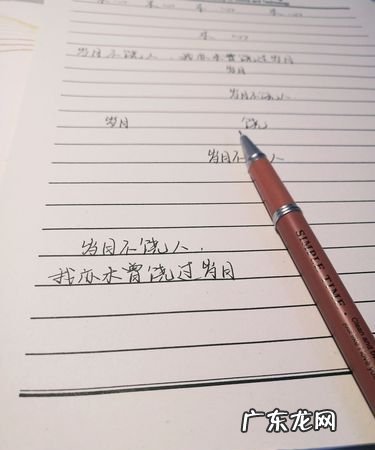 岁月不饶人，我亦未曾饶过岁月
岁月
岁月不饶人
岁月 饶
岁月不 人
岁月不饶人.
我亦未曾饶过岁月
SIMPLE TIME
广东龙网